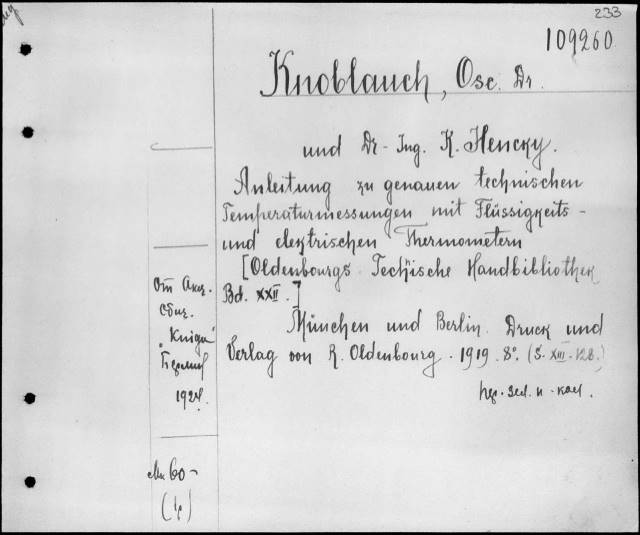 233
109260
Knoblauch, Osc. Dr.
und Dr-Ing. K. Hencky.
Anleitung zu genauen technischen
Temperaturmessungen mit Flüssigkeits-
und elektrischen Thermometern
[Oldenbourgs Technische Handbibliothek
Bd. XXII.]
München und Berlin. Druck und
Verlag von R. Oldenbourg. 1919. 8°. (S. XIII. 128.)
От Акц.
"Книга"
Берлин
1924.
60-